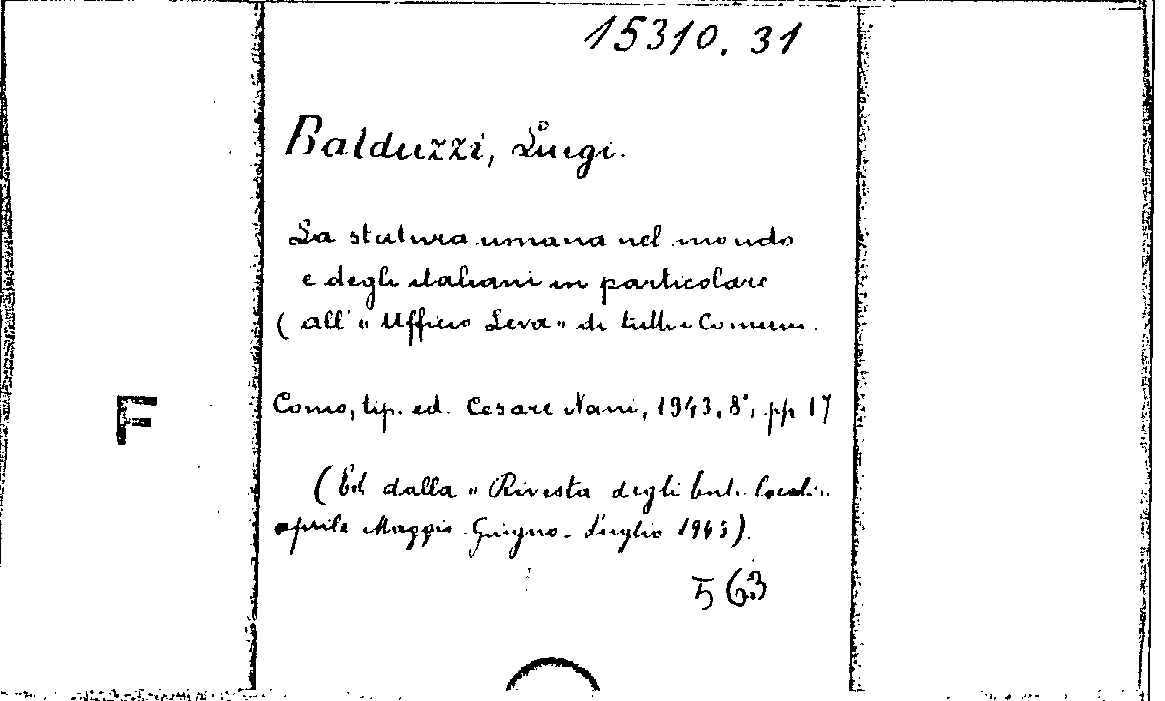 15310. 31
Balduzzi, Luigi.
La statura umana nel mondo
e degli italiani in particolare
( all' "Ufficio Leva" di tutti i Comuni.
F
Como, tip. ed. Cesare Nani, 1943, 8°, pp 17
( Est. dalla "Rivista degli Enti locali".
aprile Maggio Giugno - Luglio 1943).
563